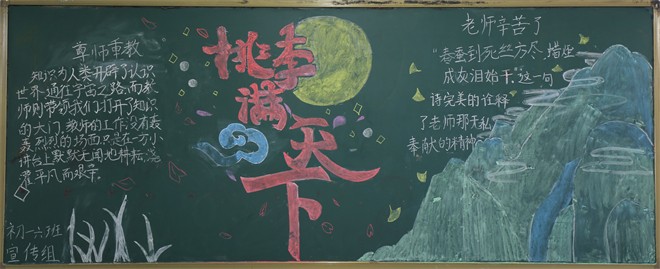 尊师重教
知识为人类开辟了认识
世界通往宇宙之路,而教
师则带领我们打开了知识
的大门,教师的工作没有轰
轰烈烈的场面,只是在一方小
讲台上默默无闻地耕耘,
平凡而艰辛。
初一六班
宣传组
桃李
满
天
下
老师辛苦了
“春蚕到死丝方尽,蜡炬
成灰泪始干”这一句
诗完美的诠释
了老师那无私
奉献的精神